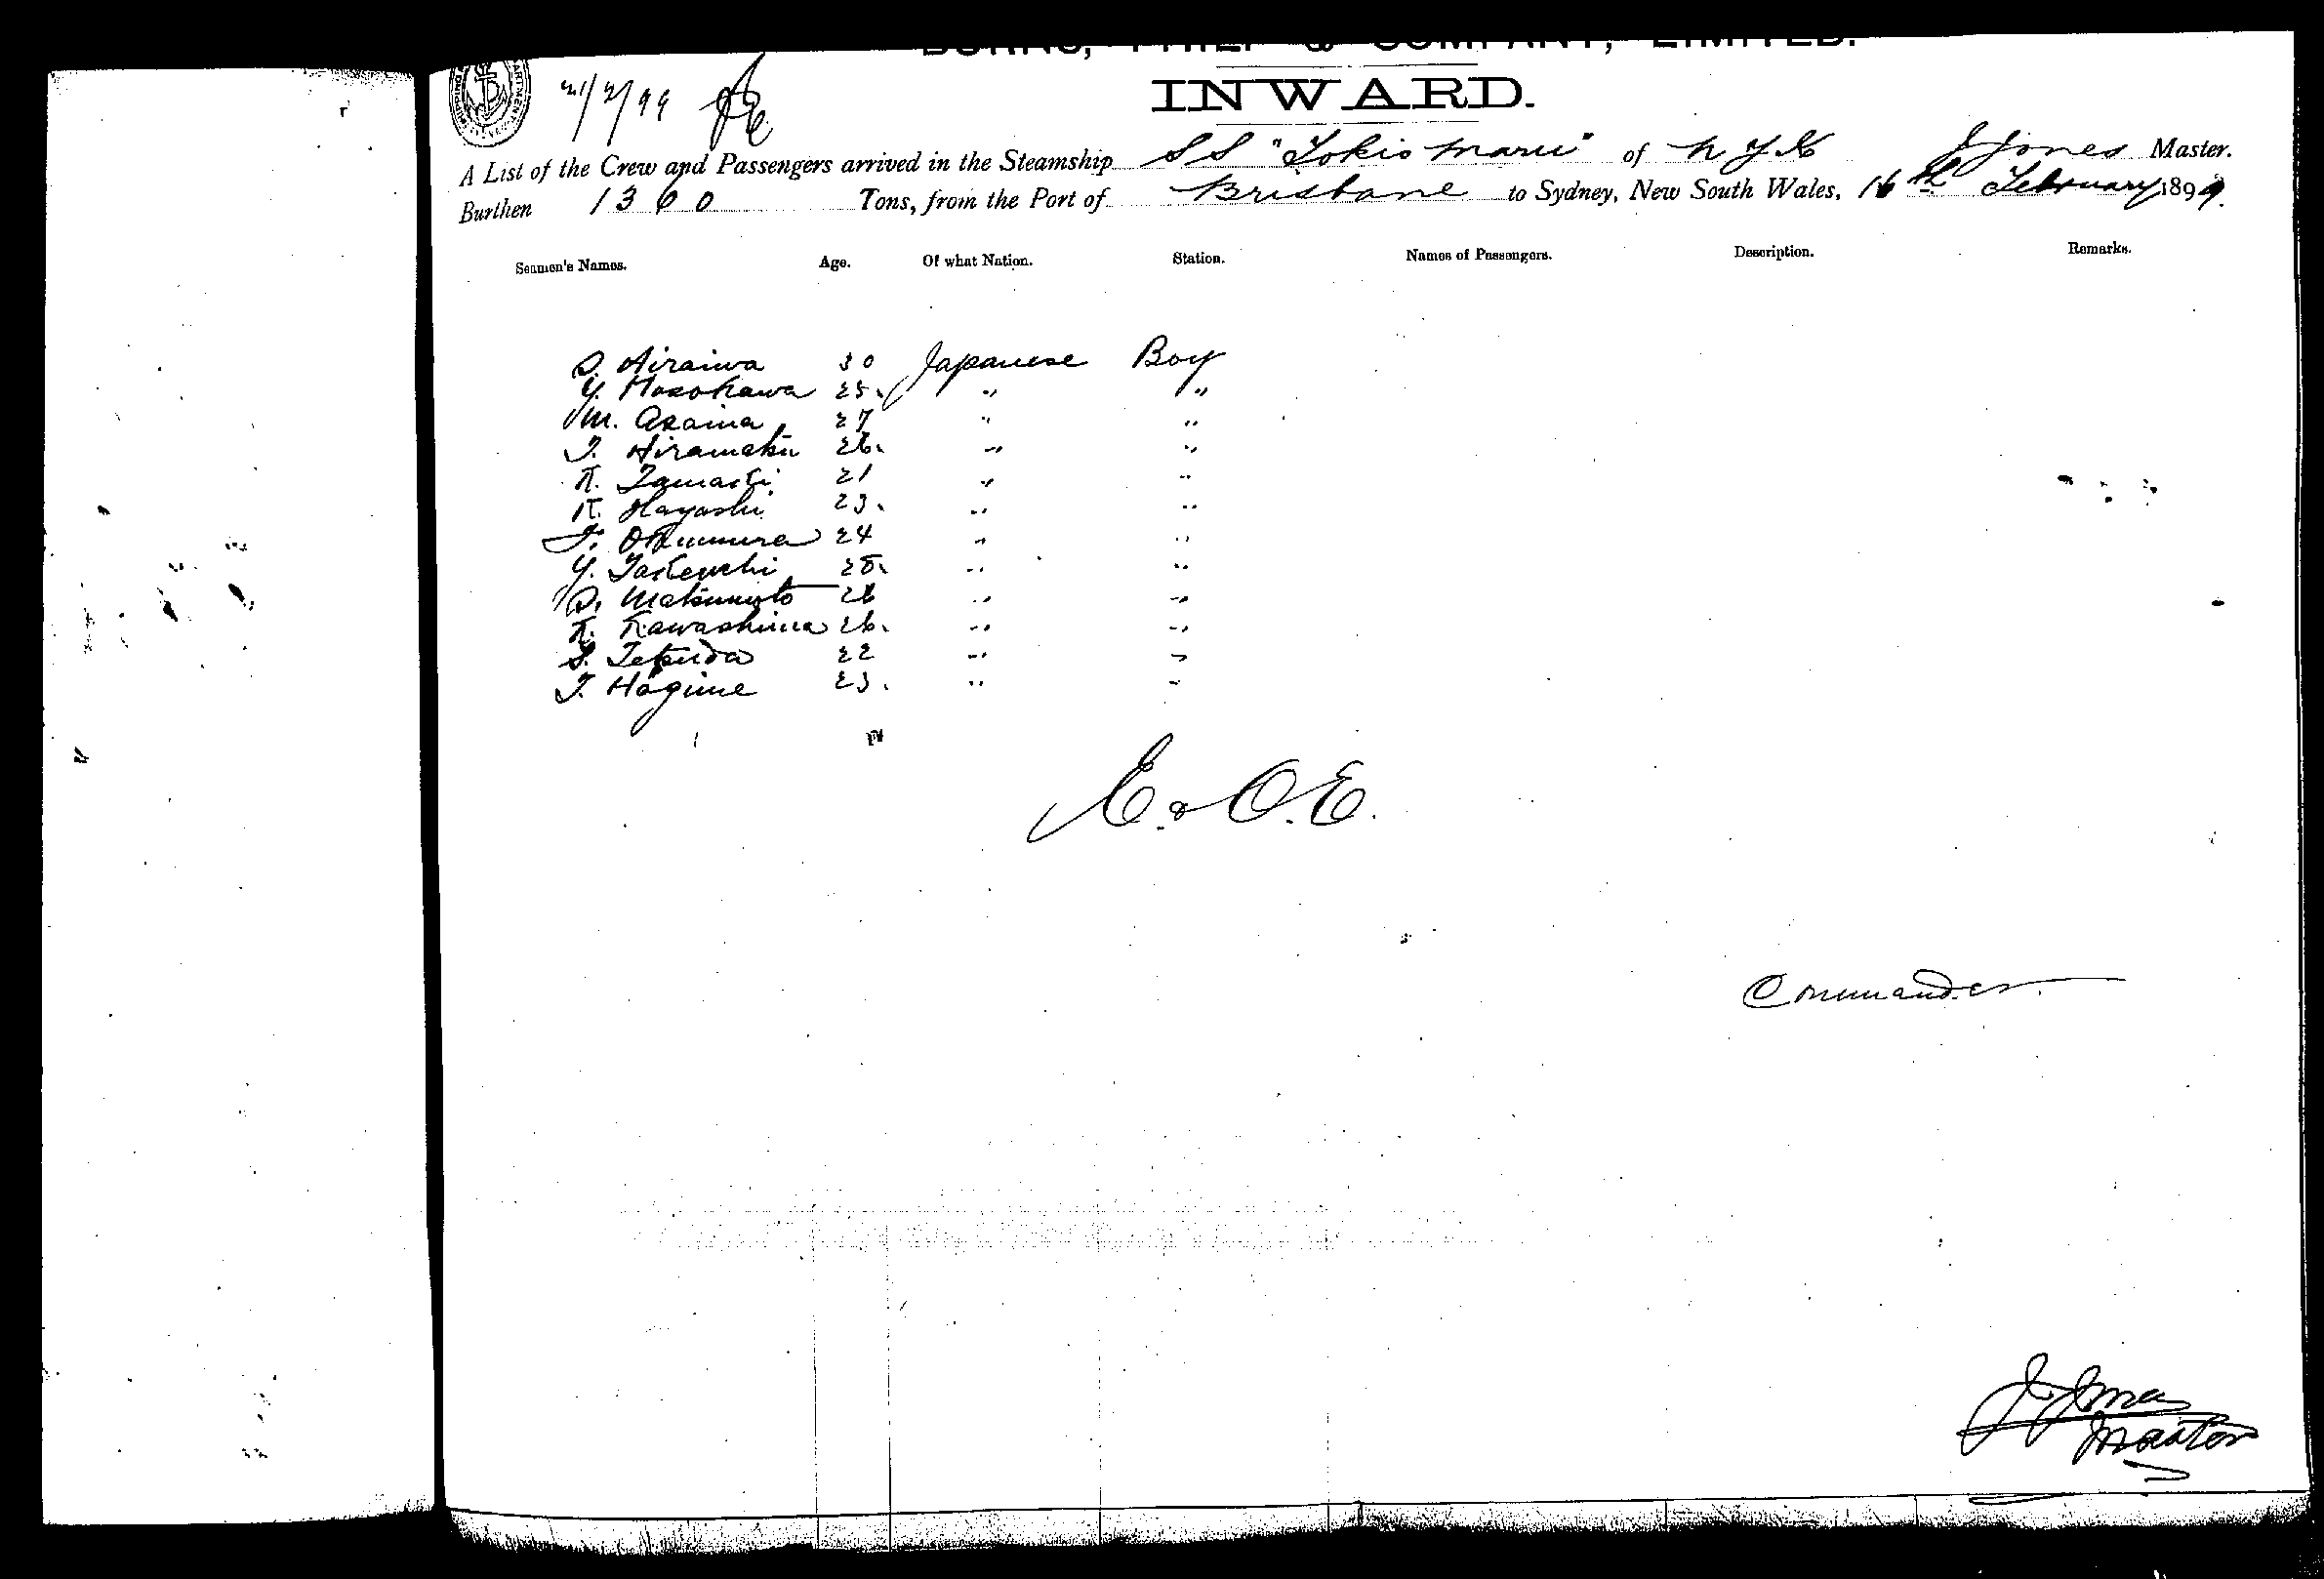 BURNS, PHILP & COMPANY, LIMITED.
INWARD.
21/2/99
A List of the Crew and Passengers arrived in the Steamship SS "Tokio Maru" of N Y K J Jones Master.
Burthen 1360 Tons, from the Port of Brisbane to Sydney, New South Wales, 16th February 1899.
Seamen's Names. Age. Of what Nation. Station. Names of Passengers. Description. Remarks.
S. Hiraiwa 30 Japanese Boy
Y. Hosokawa 25. " "
M. Asaina 27 " "
T. Hiramatsu 26. " "
K. 21 " "
K. Hayashi 23. " "
F. Okumura 24 " "
Y. Takeuchi 25. " "
S. Matsumoto 26 " "
K. Kawashima 26. " "
S. 22 " "
T. Hagime 23. " "
E. & O.E.
Commander.
J Jones
Master